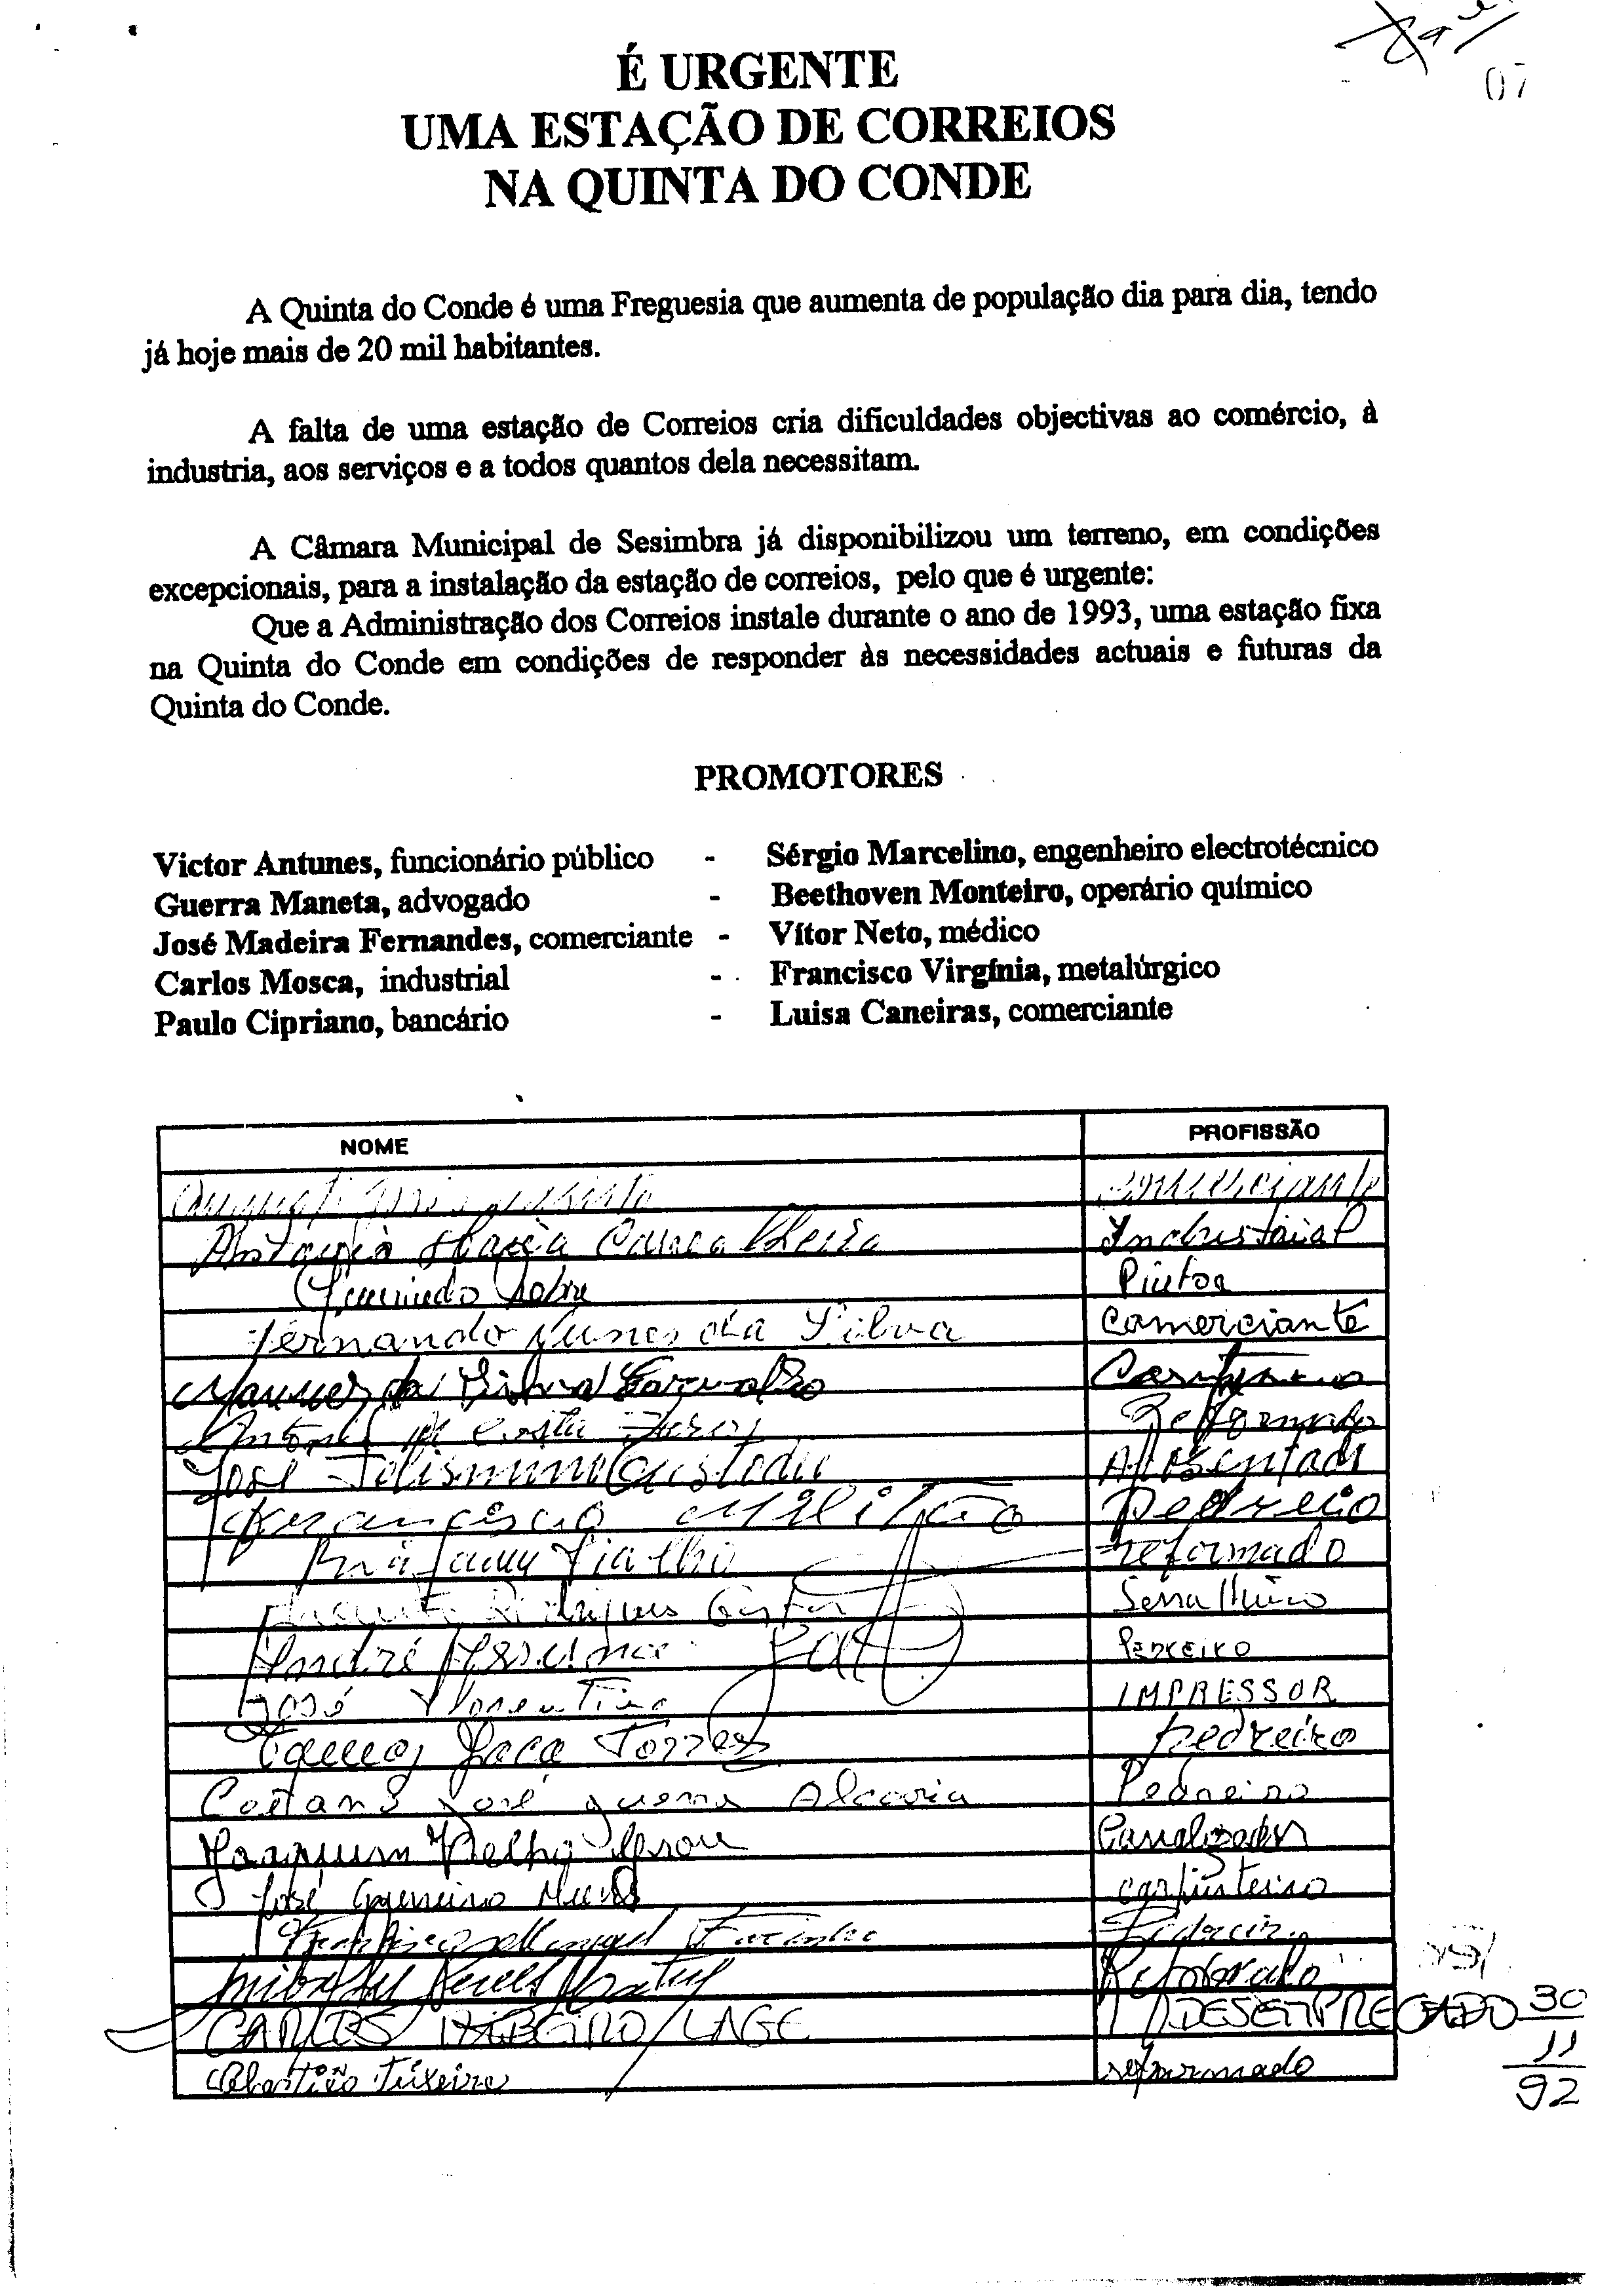 07
É URGENTE
UMA ESTAÇÃO DE CORREIOS
NA QUINTA DO CONDE
A Quinta do Conde é uma Freguesia que aumenta de população dia para dia, tendo
já hoje mais de 20 mil habitantes.
A falta de uma estação de Correios cria dificuldades objectivas ao comércio, à
industria, aos serviços e a todos quantos dela necessitam.
A Câmara Municipal de Sesimbra já disponibilizou um terreno, em condições
excepcionais, para a instalação da estação de correios, pelo que é urgente:
Que a Administração dos Correios instale durante o ano de 1993, uma estação fixa
na Quinta do Conde em condições de responder às necessidades actuais e futuras da
Quinta do Conde.
PROMOTORES
Victor Antunes, funcionário público - Sérgio Marcelino, engenheiro electrotécnico
Guerra Maneta, advogado - Beethoven Monteiro, operário químico
José Madeira Fernandes, comerciante - Vítor Neto, médico
Carlos Mosca, industrial - Francisco Virgínia, metalúrgico
Paulo Cipriano, bancário - Luisa Caneiras, comerciante
NOME PROFISSÃO
comerciante
Industrial
Pintor
Fernando Nunes da Silva Comerciante
da Silva Carvalho
da Costa Reformado
José Custodio
Francisco Militão Pedreiro
Fialho reformado
Rodrigues Serralheiro
André Pedreiro
José Florentino IMPRESSOR
Torres pedreiro
Caetano José guerra Alcaria Pedreiro
Joaquim Canalizador
José Guerreiro carpinteiro
Manuel
Reformado
CARLOS RIBEIRO LAGE DESEMPREGADO 30
11
Teixeira reformado
92